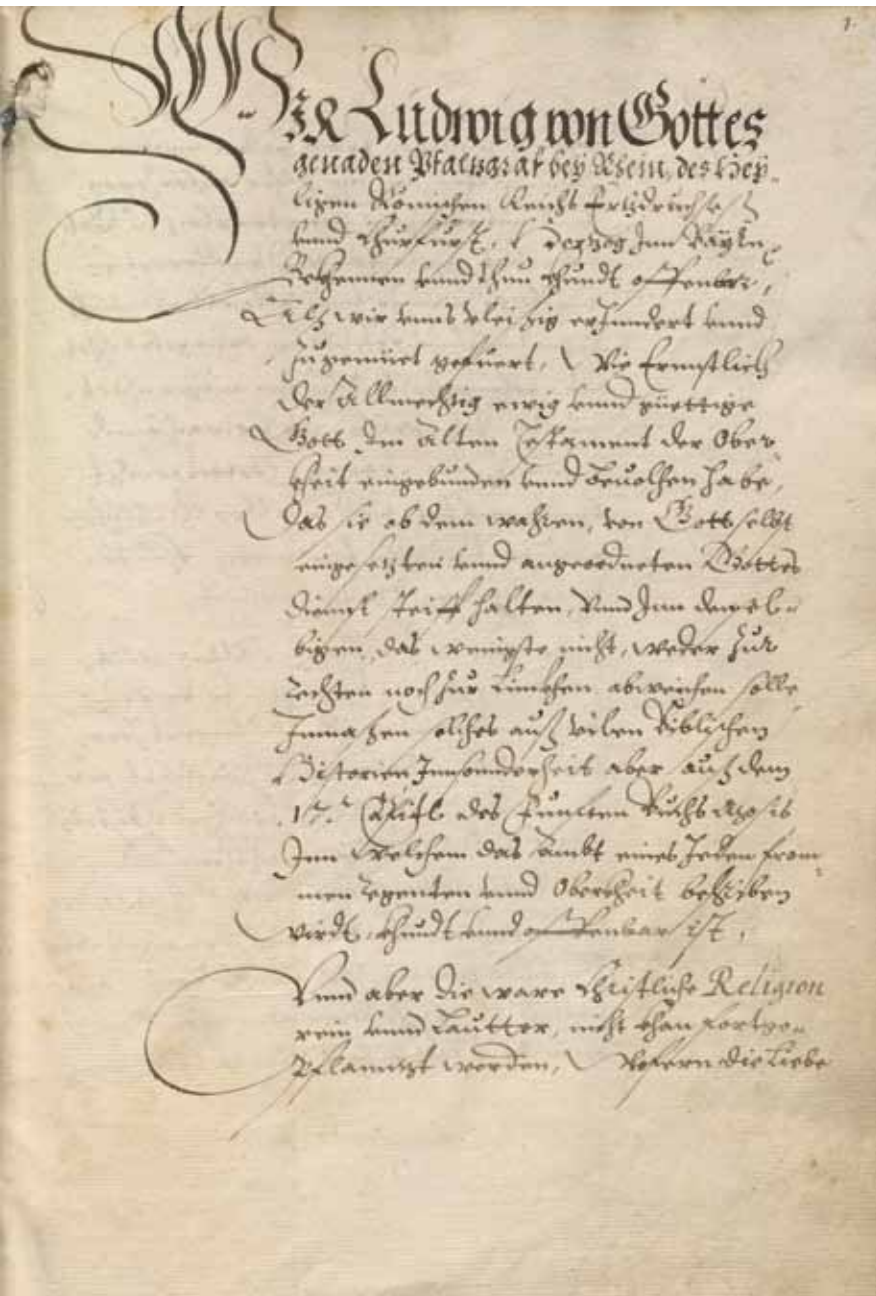 1.
WIR Ludwig von Gottes
genaden Pfaltzgraf bey Rhein, des Hey-
ligen Römischen Reichs Ertzdruchses
vnnd Churfürst, Hertzog Inn Bayrn,
Bekhennen vnnd thuu khundt offenbar,
Alß wir vnns vleissig erJnndert vnnd
zu gemüet gefuert, Wie Ernnstlich
der Allmechtig ewig vnnd güettige
Gott Im Alten Testament der Ober-
kheit eingebunden vnnd beuolhen habe,
Das sie ob dem wahren, von Gott selbst
eingesetzten vnnd angeordneten Gottes
dienst steiff halten, Vnnd Inn demsel-
bigen, das wenigste nicht, weder zur
rechten noch zur linckhen abweichen solle
Inmassen solches auß vilen Biblischen
Historien Innsonderheit aber auß dem
17. Capitl des Funfften Buchs Mosis
Inn welchem das Ambt eines Jeden from-
men regenten vnnd Oberkheit beschriben
wirdt, khundt vnnd offenbar ist.
Vnnd aber die ware Christliche Religion
rein vnnd lautter, nicht khan fortge-
Pflanntzt werden, Wofern die Liebe